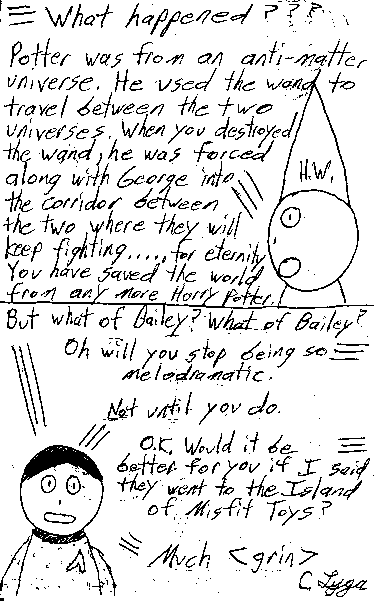 What happened ? ? ?
Potter was from an anti-matter
universe. He used the wand to
travel between the two
universes. When you destroyed
the wand, he was forced
along with George into
the corridor between
the two where they will
keep fighting..... for eternity
You have saved the world
from any more Harry Potter.
H.W.
But what of Bailey? What of Bailey?
Oh will you stop being so
melodramatic.
Not until you do.
O.K. Would it be
better for you if I said
they went to the Island
of Misfit Toys?
Much <grin>
C. Lyga